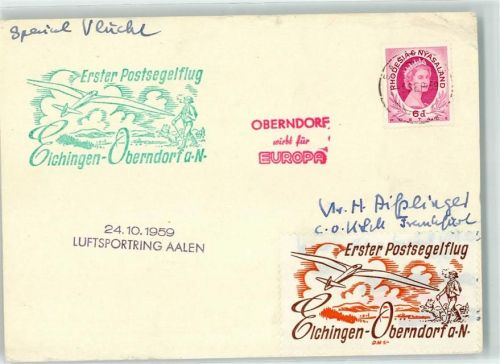 Special Vlucht
Erster Postsegelflug
Elchingen-Oberndorf a.N.
RHODESIA & NYASALAND
6d
OBERNDORF
wirbt für
EUROPA
24.10.1959
LUFTSPORTRING AALEN
H.
c.o. KLM Frankfurt
Erster Postsegelflug
Elchingen-Oberndorf a.N.